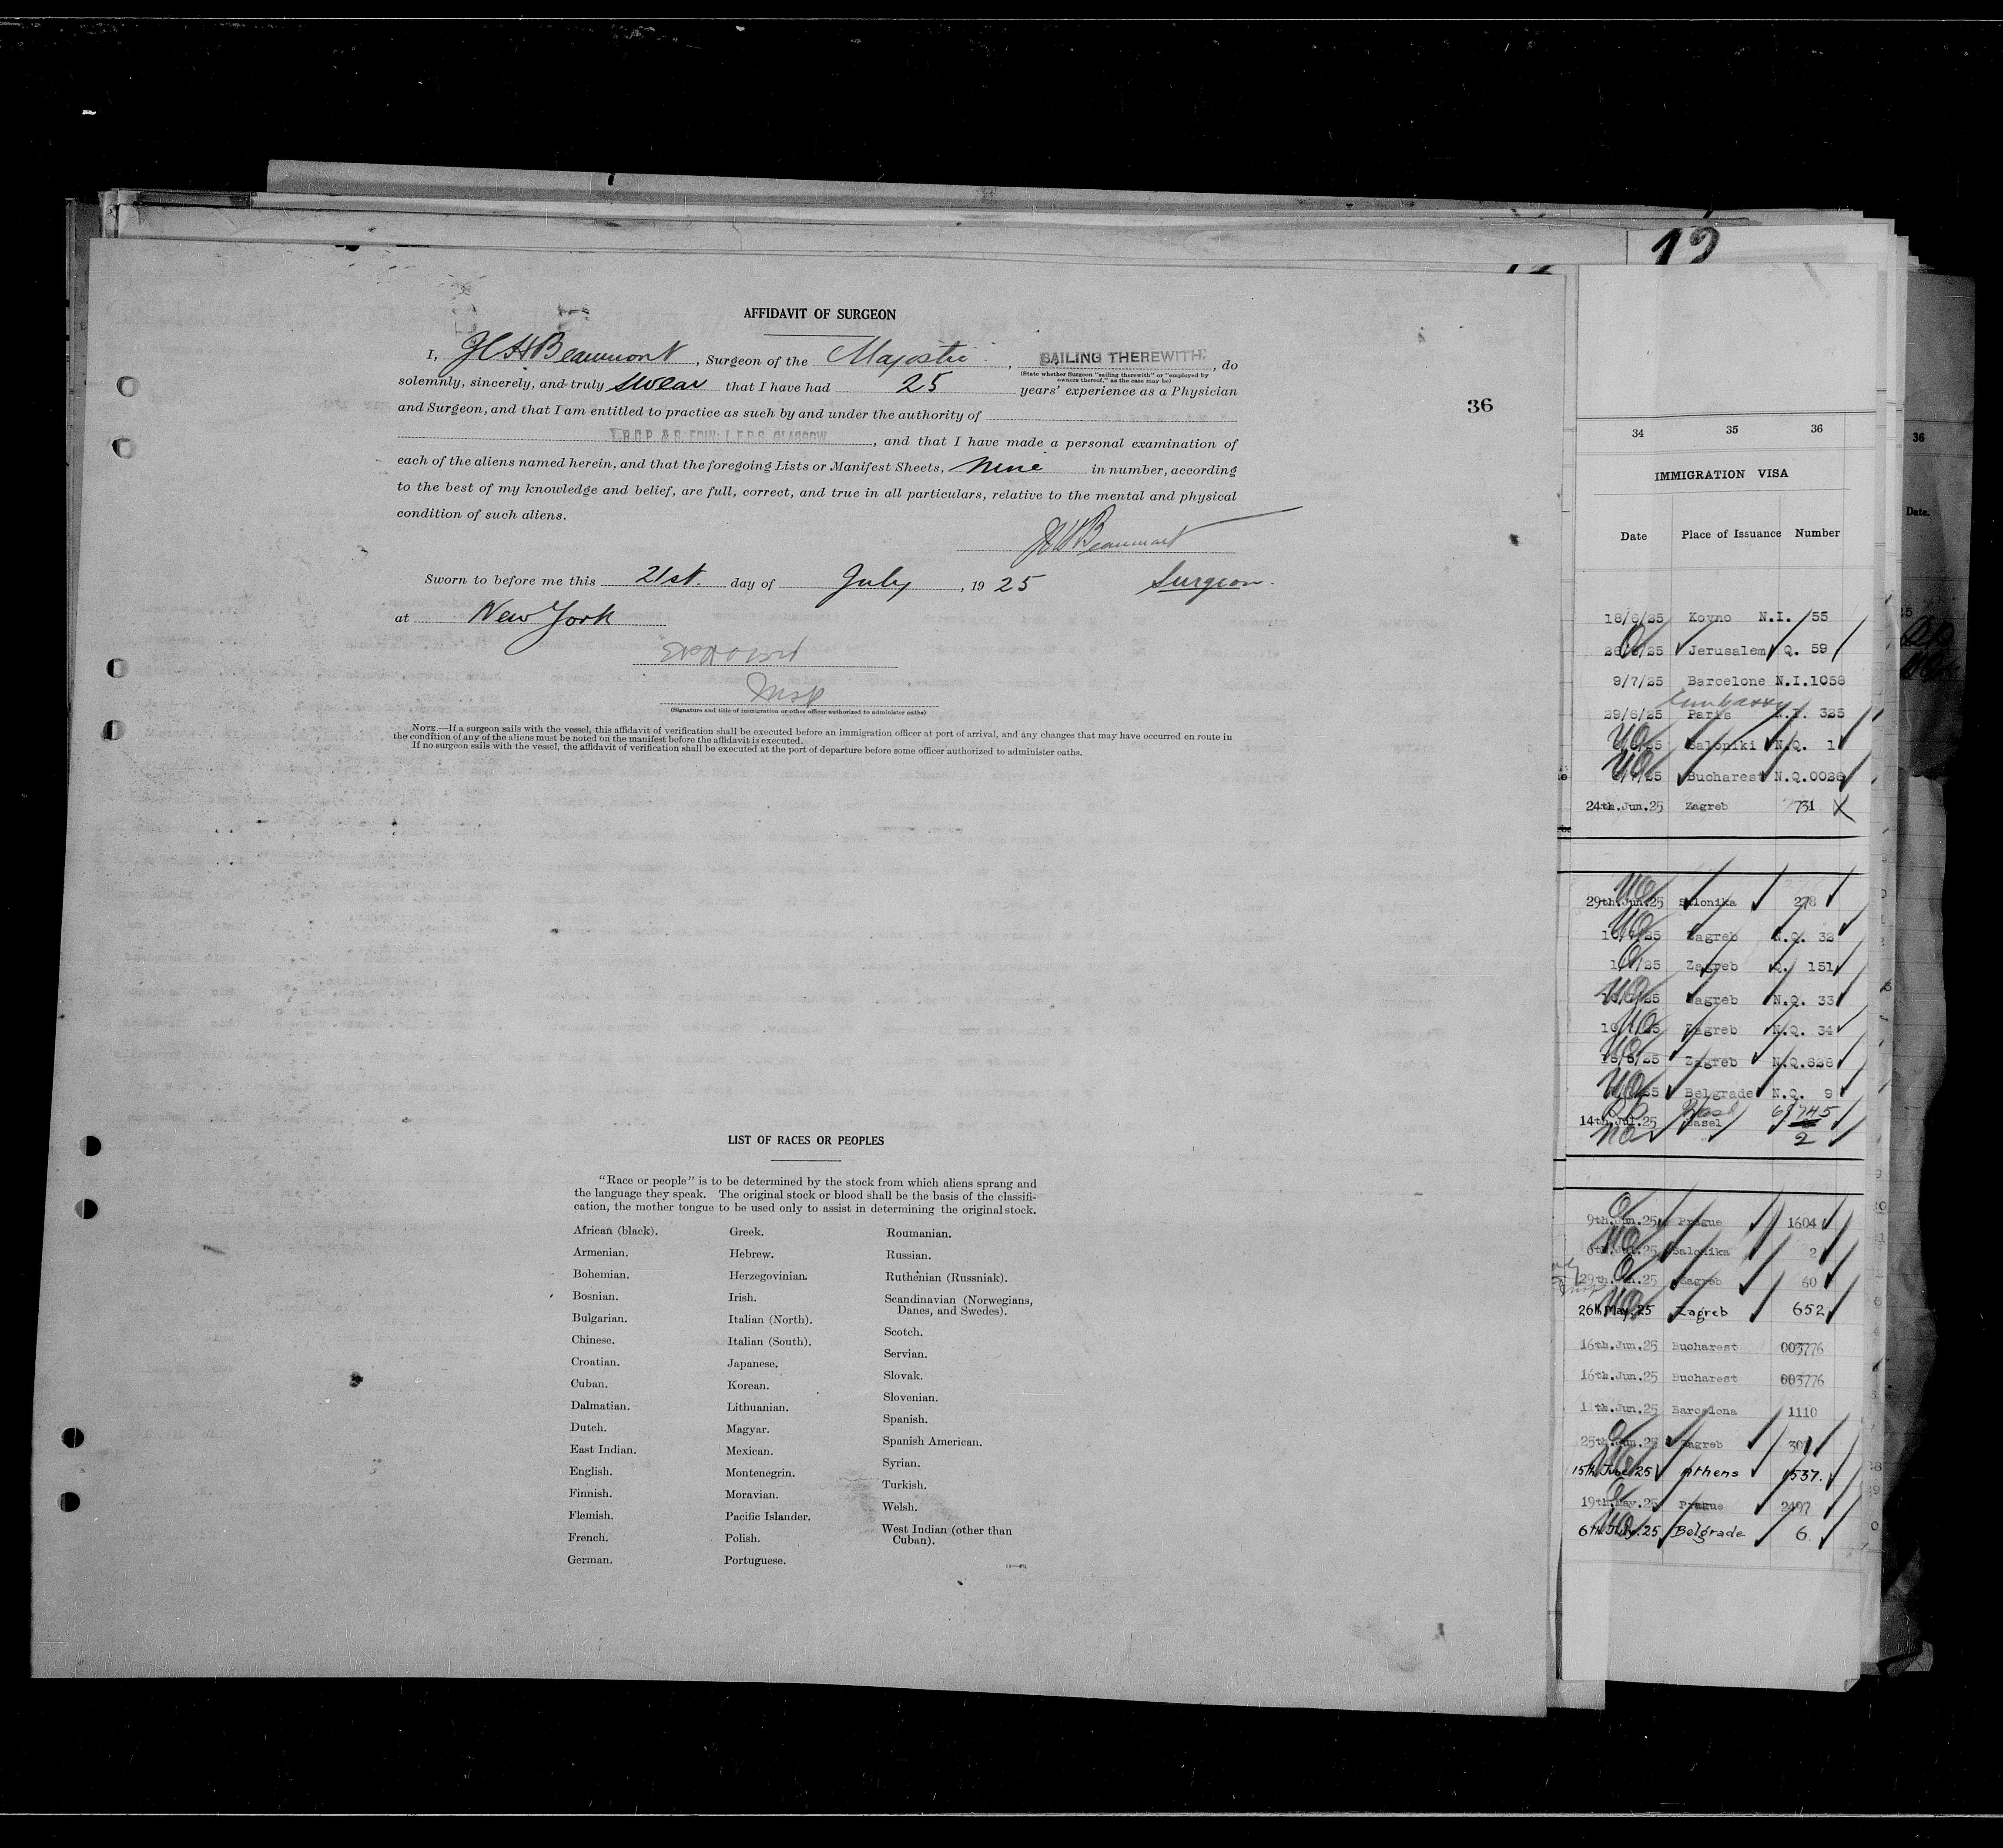 12
AFFIDAVIT OF SURGEON
I, J C H Beaumont, Surgeon of the Majestic, SAILING THEREWITH, do
(State whether Surgeon "sailing therewith" or "employed by
owners thereof," as the case may be)
solemnly, sincerely, and truly swear that I have had 25 years' experience as a Physician
and Surgeon, and that I am entitled to practice as such by and under the authority of
L.R.C.P. & S. EDIN: L.F.P.S. GLASGOW, and that I have made a personal examination of
each of the aliens named herein, and that the foregoing Lists or Manifest Sheets, nine in number, according
to the best of my knowledge and belief, are full, correct, and true in all particulars, relative to the mental and physical
condition of such aliens.
Beaumont
Sworn to before me this 21st. day of July, 1925 Surgeon.
at New York
Insp
(Signature and title of immigration or other officer authorized to administer oaths)
NOTE.—If a surgeon sails with the vessel, this affidavit of verification shall be executed before an immigration officer at port of arrival, and any changes that may have occurred en route in
the condition of any of the aliens must be noted on the manifest before the affidavit is executed.
If no surgeon sails with the vessel, the affidavit of verification shall be executed at the port of departure before some officer authorized to administer oaths.
36
LIST OF RACES OR PEOPLES
"Race or people" is to be determined by the stock from which aliens sprang and
the language they speak. The original stock or blood shall be the basis of the classifi-
cation, the mother tongue to be used only to assist in determining the original stock.
African (black).
Armenian.
Bohemian.
Bosnian.
Bulgarian.
Chinese.
Croatian.
Cuban.
Dalmatian.
Dutch.
East Indian.
English.
Finnish.
Flemish.
French.
German.
Greek.
Hebrew.
Herzegovinian.
Irish.
Italian (North).
Italian (South).
Japanese.
Korean.
Lithuanian.
Magyar.
Mexican.
Montenegrin.
Moravian.
Pacific Islander.
Polish.
Portuguese.
Roumanian.
Russian.
Ruthenian (Russniak).
Scandinavian (Norwegians,
Danes, and Swedes).
Scotch.
Servian.
Slovak.
Slovenian.
Spanish.
Spanish American.
Syrian.
Turkish.
Welsh.
West Indian (other than
Cuban).
34 35 36
IMMIGRATION VISA
Date Place of Issuance Number
18/6/25 Kovno N.I. 55
Jerusalem Q. 59
9/7/25 Barcelone N.I.1058
29/6/25 Paris N.I. 325
Saloniki N.Q. 1
Bucharest N.Q.0026
24th.Jun.25 Zagreb 731 X
29th.Jun.25 Salonika 278
Zagreb N.Q. 32
Zagreb Q. 151
Zagreb N.Q. 33
Zagreb N.Q. 34
Zagreb N.Q.628
Belgrade N.Q. 9
14th.Jul.25 Basel 2
9th.Jun.25 Prague 1604
Salonika 2
29th.Jun.25 Zagreb 60
26th May.25 Zagreb 652
16th.Jun.25 Bucharest 003776
16th.Jun.25 Bucharest 003776
Barcelona 1110
25th.Jun.25 Zagreb 301
15th.June.25 Athens 1537.
19th.May.25 Prague 2497
6th.July.25 Belgrade 6
36
Date.